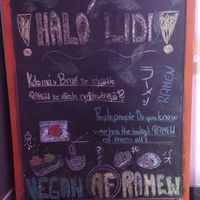 ! HALÓ LIDI !
Kdo má v Brně ze všech
RAMEN ze všech nejdrsnější?
ラーメン
RAMEN
People people Do you know
who has the toughest RAMEN
of them all?
VEGAN AF RAMEN